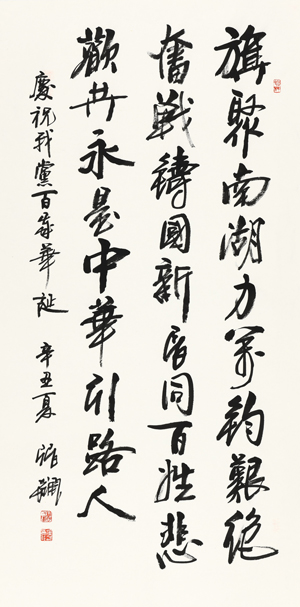 旗聚南湖力萬鈞艱絕
奮戰鑄國新同百姓悲
歡共永是中華引路人
慶祝我黨百年華誕 辛丑夏